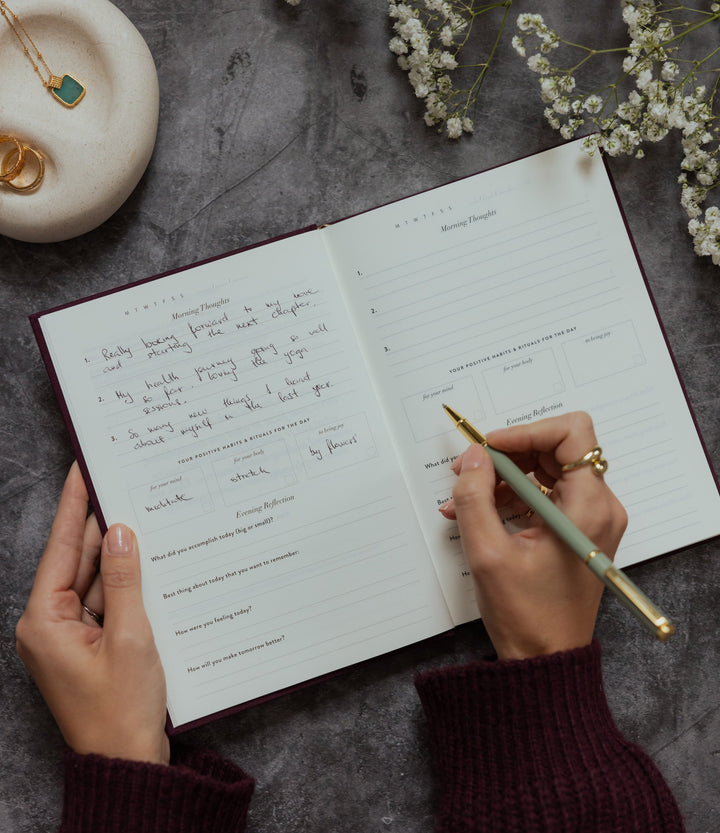 M T W T F S S
Morning Thoughts
1. Really looking forward to my move
and starting the next chapter.
2. My health journey going so well
so far. I loving the yoga
sessions.
3. So many new things I learnt
about myself in the last year.
YOUR POSITIVE HABITS & RITUALS FOR THE DAY
for your mind
for your body
to bring joy
meditate
stretch
by flowers
Evening Reflection
What did you accomplish today (big or small)?
Best thing about today that you want to remember:
How were you feeling today?
How will you make tomorrow better?
M T W T F S S
Morning Thoughts
1.
2.
3.
YOUR POSITIVE HABITS & RITUALS FOR THE DAY
for your mind
for your body
to bring joy
Evening Reflection
What did you